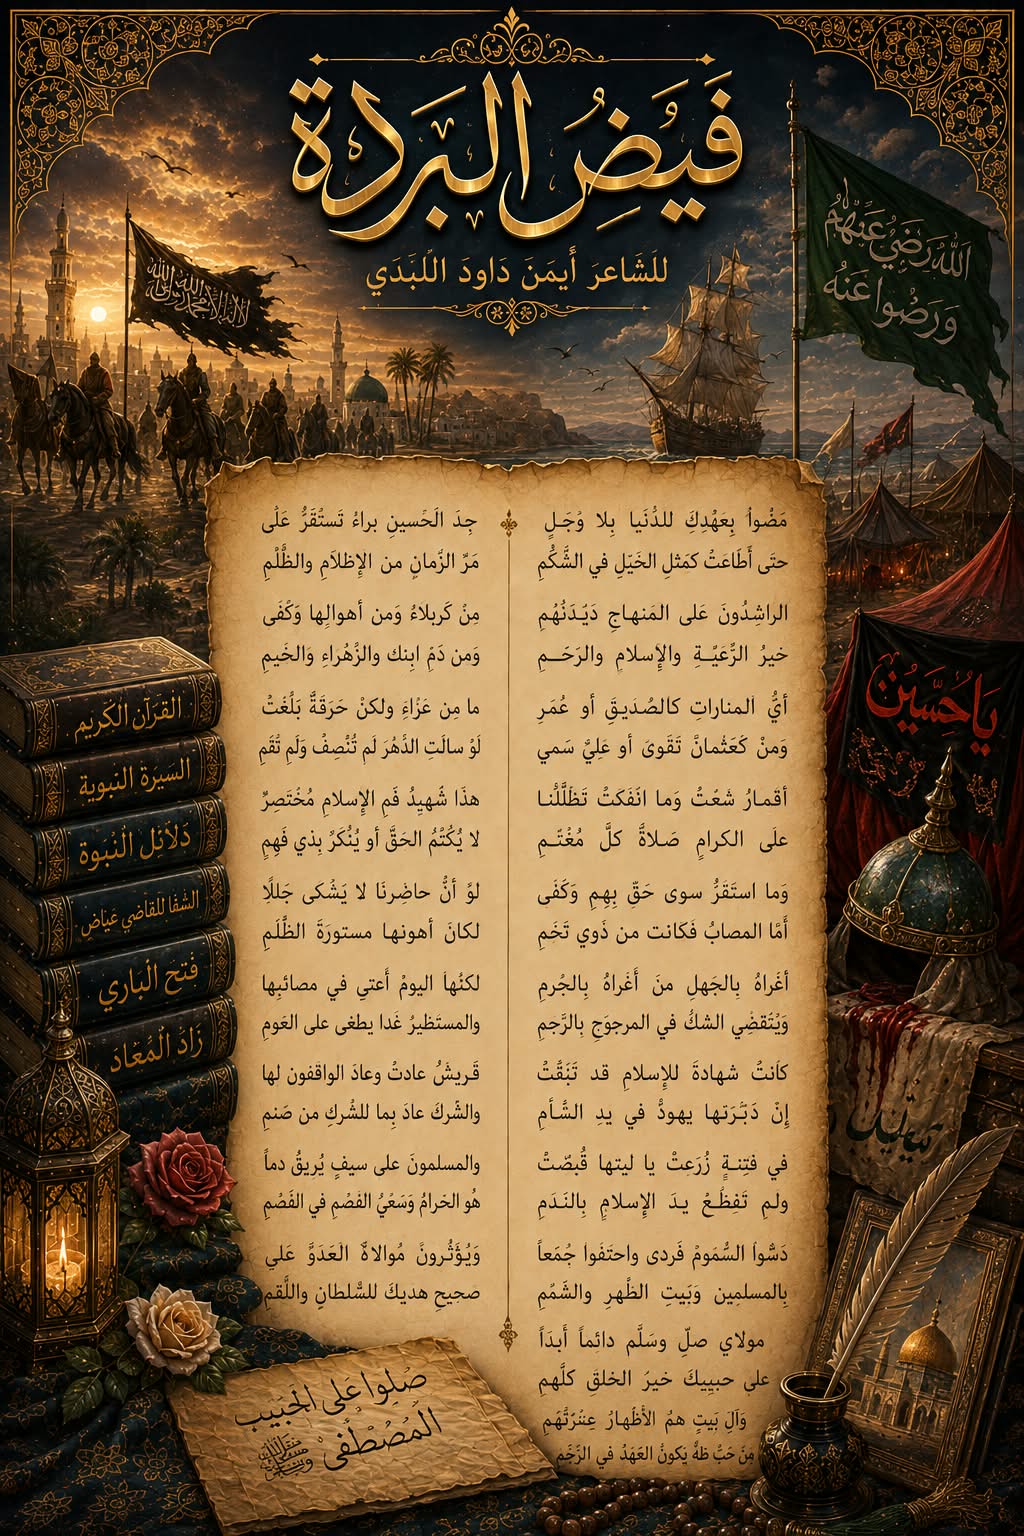 فَيْضُ البَرْدة
للَشَاعرَ أَيمَنَ دَاودَ اللَبَدَي
لا اله الا الله محمد رسول الله
اللهُ رَضيَ عَنْهُمْ
وَرَضُوا عَنْهُ
مَضْواُ بِعَهْدِكَ للدُنَيا بِلا وَجَلٍ
حتَى أَطَاعَتْ كمَثلِ الخَيْلِ في الشَّكُمِ
الراشِدُونَ عَلى المَنهاجِ دَيْدَنُهُم
خيرُ الرَّعَيّةِ والإَسلامِ والرَحَمِ
أيُّ المناراتِ كالصُدَيقِ أو عُمَرِ
وَمَنْ كَعَثمانَّ تَقْوىَ أو عَلِيٌ سَمي
أقمارُ شعْتْ وَما انَفَكَتْ تَظَلَّلُنا
علَى الكرامِ صَلاةَّ كلَّ مُغْتَمِ
وَما استَقَرُّ سوى حَقّ بِهِم وَكَفَى
أَمَّا المصابُ فَكانت من ذَوي تَخَمِ
أغَراهُ بِالجَهلِ منَ أَغَراهُ بِالجُرمِ
وَيَُتَقضِي الشكُ في المرجوَجِ بِالرَّجَمِ
كاَنتْ شهادةَ للإِسلامِ قد تَبَقَّتْ
إنْ دَبَّرَتها يهودُ في يدِ الشَّأمِ
في فتِنةٍ زُرَعِتْ يا ليتها قُبضّتْ
ولم تَفِظَعْ يدَ الإِسلامِ بِالنَدَمِ
دَسُّواُ السُّمَومْ فَردى واحتَفَوا جُمَعاً
بِالمسلمِين وَبَيتِ الطُهرِ والشَمُمِ
مولاي صلّ وسَلَّم دائماً أَبدَاً
على حبيبِيكَ خيرُ الخلقِ كلَّهمِ
وَآلِ بَيتٍ همُ الأَطْهارُ عِتْرَتُهُم
مِنَ حَبُ طهْ يَكونُ العَهْدُ في الرَّخَمِ
جِدَ الَحُسينِ براءُ تَستُقَرُّ عَلَى
مَرِّ الزَّمانِ من الإِظلَامِ والظَّلُمِ
مِنْ كَربلاءُ وَمن أهوالِها وَكْفَى
وَمن دَمَ ابِنك والزُهْراءِ وَالخَيمِ
ما مِن عَزْاءِ ولكنْ حَرَقَةٌ بَلَّغَتْ
لَوْ سالَتِ الدَهُرَ لم تُنْصِفْ وَلَم تُقَمِ
هذَا شُهيِدُ فَمِ الإِسلامِ مُخْتَصِرٌ
لا يُكْتْمُ الحَقَّ أو يُنْكَرُ بِذي فَهِمٍ
لوْ أنَُّ حاضِرنَا لا يَشْكى جَللًا
لكانَ أهونها مستورَةَ الظَّلَمِ
لكنْها اليومْ أَعتي في مصائبِها
والمستَظيرُ غَدا يطغى على العَومِ
قَريشُ عادتْ وعادَ الواقفون لها
والشَّركَ عادَ بِما للشُركِ من صَنمِ
والمسلمونَ على سيفٍ يُريقُ دماً
هُو الحَرامُ وَسَعْيُ الفَصْمِ في الفَصْمِ
وَيُؤَثُرونَّ مُوالاةٌ الَعَدَوَّ عَلي
صحيحِ هديكَ للسُّلطانِ واللَّقمِ
يَاحُسَيْن
القَرَآن الكَريم
السَيرَة النَبوية
دَلَائِل النُبُوة
الشفَا للقَاضي عيَاض
فَتحَ الَباري
زَادَ المُعَاد
صَلِّوا عَلى الحَبيب
المُصْطَفىَ ﷺ